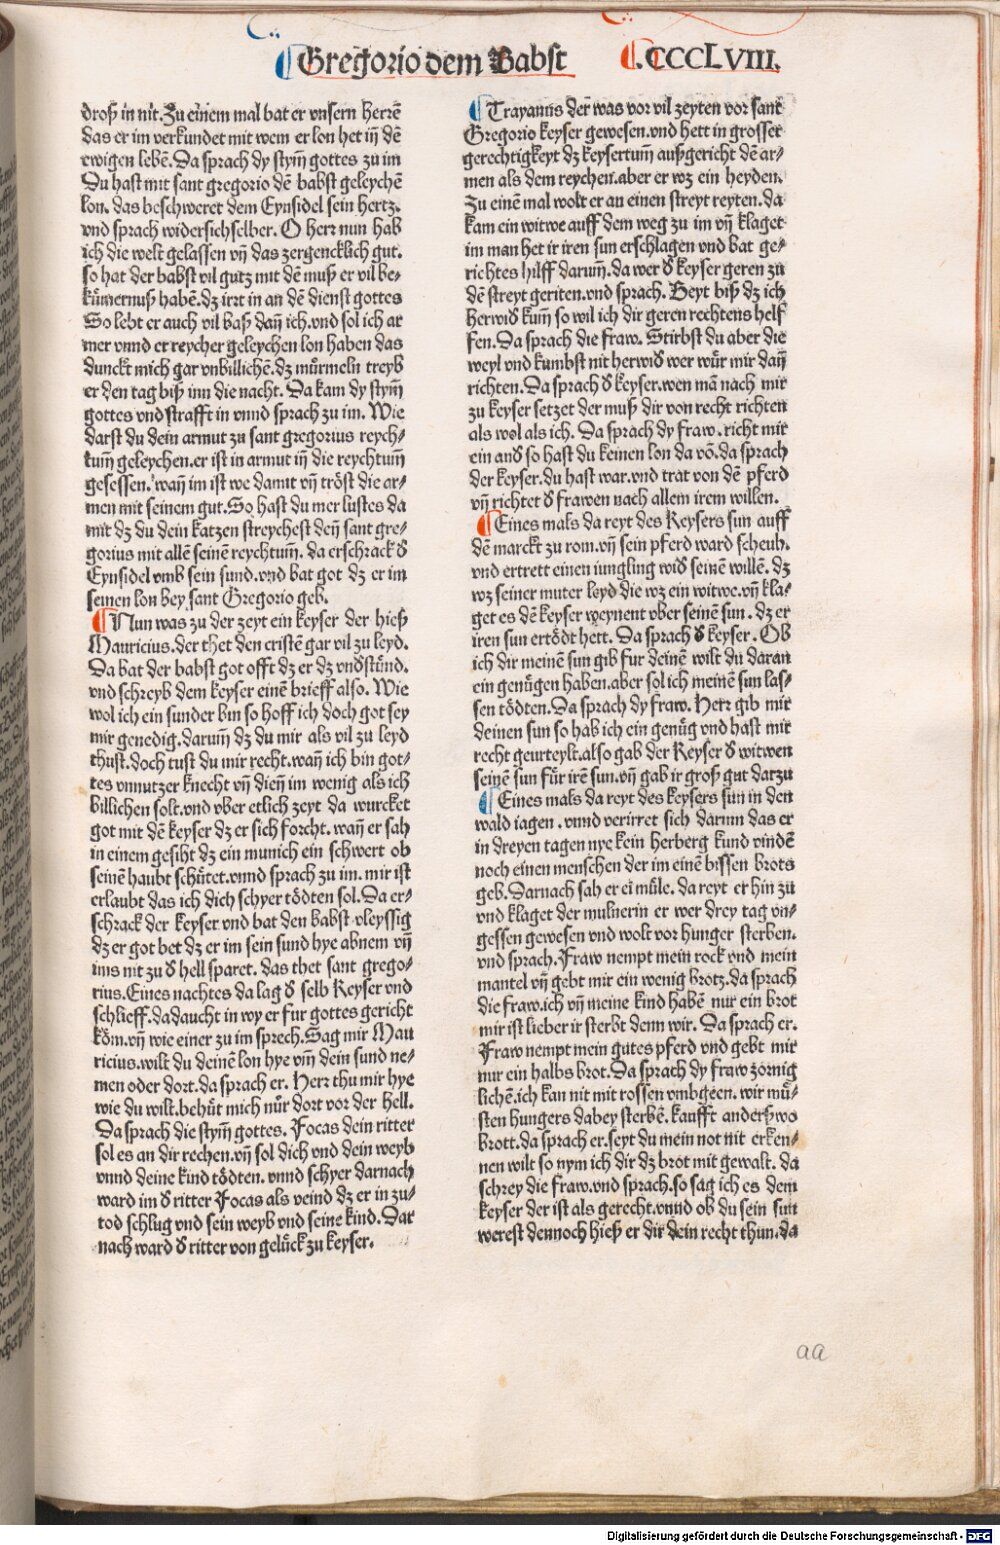 Gregorio dem Babst .CCCLVIII.
droß in nit. Zu einem mal bat er vnsern herrẽ
das er im verkundet mit wem er lon het in̄ dẽ
ewigen lebẽ. Da sprach dy stym̄ gottes zu im
Du hast mit sant gregorio dẽ babst geleychẽ
lon. das beschweret dem Eynsidel sein hertz.
vnd sprach widersichselber. O herr nun hab
ich die welt gelassen vn̄ das zergencklich gut.
so hat der babst vil gutz mit dẽ muß er vil be⸗
kům̃ernuß habẽ. dz irrt in an dẽ dienst gottes
So lebt er auch vil baß dañ ich. vnd sol ich ar
mer vnnd er reycher geleychen lon haben das
dunckt mich gar vnbillichẽ. dz můrmeln treyb
er den tag biß inn die nacht. Da kam dy stym̄
gottes vnd strafft in vnnd sprach zu im. Wie
darst du dein armut zu sant gregorius reych⸗
tum̄ geleychen. er ist in armut in̄ die reychtum̄
gesessen. wañ im ist we damit vn̄ tröst die ar⸗
men mit seinem gut. So hast du mer lustes da
mit dz du dein katzen streychest deñ sant gre⸗
gorius mit allẽ seinẽ reychtum̄. da erschrack d̄
Eynsidel vmb sein sund. vnd bat got dz er im
seinen lon bey sant Gregorio geb.
Nun was zu der zeyt ein keyser der hieß
Mauricius. der thet den cristẽ gar vil zu leyd.
Da bat der babst got offt dz er dz vnd̄stůnd.
vnd schreyb dem keyser einẽ brieff also. Wie
wol ich ein sunder bin so hoff ich doch got sey
mir genedig. darum̄ dz du mir als vil zu leyd
thust. doch tust du mir recht. wañ ich bin got⸗
tes vnnutzer knecht vn̄ dien̄ im wenig als ich
billichen solt. vnd vber etlich zeyt da wurcket
got mit dẽ keyser dz er sich forcht. wañ er sah
in einem gesiht dz ein munich ein schwert ob
seinẽ haubt schůtet. vnnd sprach zu im. mir ist
erlaubt das ich dich schyer tödten sol. Da er⸗
schrack der keyser vnd bat den babst vleyssig
dz er got bet dz er im sein sund hye abnem vn̄
ims nit zu d̄ hell sparet. das thet sant grego⸗
rius. Eines nachtes da lag d̄ selb Keyser vnd
schlieff. da daucht in wy er fur gottes gericht
köm. vn̄ wie einer zu im sprech. Sag mir Mau
ricius. wilt du deinẽ lon hye vm̄ dein sund ne⸗
men oder dort. da sprach er. Herr thu mir hye
wie du wilt. behůt mich nůr dort vor der hell.
Da sprach die stym̄ gottes. Focas dein ritter
sol es an dir rechen. vn̄ sol dich vnd dein weyb
vnnd deine kind tödten. vnnd schyer darnach
ward im d̄ ritter Focas als veind dz er in zu⸗
tod schlug vnd sein weyb vnd seine kind. Dar
nach ward d̄ ritter von gelůck zu keyser.
Trayanus der was vor vil zeyten vor sant
Gregorio keyser gewesen. vnd hett in grosser
gerechtigkeyt dz keysertum̄ außgericht dẽ ar⸗
men als dem reychen. aber er wz ein heyden.
Zu einẽ mal wolt er an einen streyt reyten. da
kam ein witwe auff dem weg zu im vn̄ klaget
im man het ir iren sun erschlagen vnd bat ge⸗
richtes hilff darum̄. da wer d̄ keyser geren zu
dẽ streyt geriten. vnd sprach. Beyt biß dz ich
herwid̄ kum̄ so wil ich dir geren rechtens helf
fen. Da sprach die fraw. Stirbst du aber die
weyl vnd kumbst nit herwid̄ wer wůr mir dañ
richten. Da sprach d̄ keyser. wen mā nach mir
zu keyser setzet der muß dir von recht richten
als wol als ich. Da sprach dy fraw. richt mir
ein and̄ so hast du keinen lon da vō. da sprach
der keyser. du hast war. vnd trat von dẽ pferd
vn̄ richtet d̄ frawen nach allem irem willen.
Eines mals da reyt des Keysers sun auff
dẽ marckt zu rom. vn̄ sein pferd ward scheuh.
vnd ertrett einen iungling wid̄ seinẽ willẽ. dz
wz seiner muter leyd die wz ein witwe. vn̄ kla⸗
get es dẽ keyser weynent vber seinẽ sun. dz er
iren sun ertödt hett. Da sprach d̄ keyser. Ob
ich dir meinẽ sun gib fur deinẽ wilt du daran
ein genůgen haben. aber sol ich meinẽ sun las⸗
sen tödten. Da sprach dy fraw. Herr gib mir
deinen sun so hab ich ein genůg vnd hast mir
recht geurteylt. also gab der Keyser d̄ witwen
seinẽ sun fůr irẽ sun. vn̄ gab ir groß gut darzu
Eines mals da reyt des keysers sun in den
wald iagen. vnnd verirret sich darinn das er
in dreyen tagen nye kein herberg kund vindẽ
noch einen menschen der im einẽ bissen brots
geb. Darnach sah er ei můle. da reyt er hin zu
vnd klaget der mulnerin er wer drey tag vn⸗
gessen gewesen vnd wolt vor hunger sterben.
vnd sprach. Fraw nempt mein rock vnd mein
mantel vn̄ gebt mir ein wenig brotz. da sprach
die fraw. ich vn̄ meine kind habẽ nur ein brot
mir ist lieber ir sterbt denn wir. Da sprach er.
Fraw nempt mein gutes pferd vnd gebt mir
nur ein halbs brot. Da sprach dy fraw zornig
lichẽ. ich kan nit mit rossen vmbgeen. wir mů⸗
sten hungers dabey sterbẽ. kaufft anderßwo
brott. da sprach er. seyt du mein not nit erken⸗
nen wilt so nym ich dir dz brot mit gewalt. da
schrey die fraw. vnd sprach. so sag ich es dem
keyser der ist als gerecht. vnnd ob du sein sun
werest dennoch hieß er dir dein recht thun. da
aa
Digitalisierung gefördert durch die Deutsche Forschungsgemeinschaft - DFG